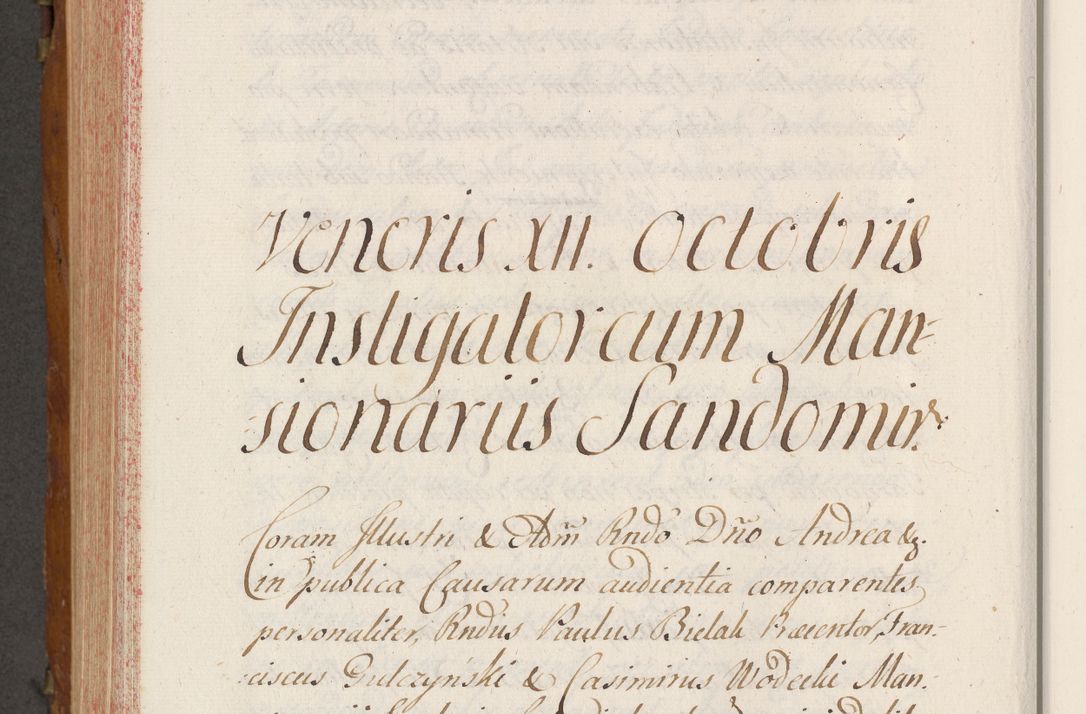 Veneris XII. Octobris
Instigatorcum Man=
sionariis Sandomir.
Coram Illustri & Adm̃ Rndõ Dño Andrea &.
in publica Causarum audientia comparentes
personaliter, Rndus Paulus Bielak Præcentor, Fran-
ciscus Gulczyński & Casimirus Wodecki Man-